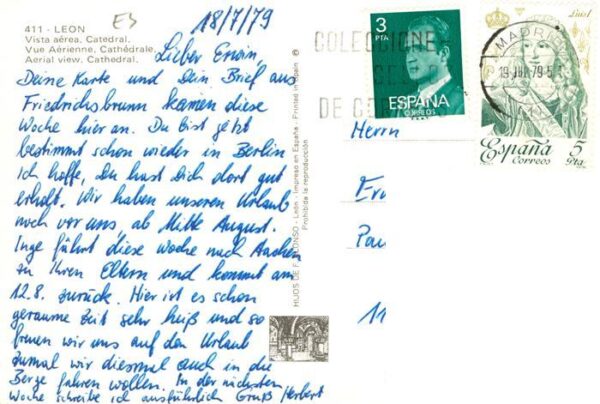 ES
18/7/79
411 - LEON
Vista aérea. Catedral.
Vue Aérienne. Cathédrale.
Aerial view. Cathedral.
Lieber Erwin,
Deine Karte und Dein Brief aus
Friedrichsbrunn kamen diese
Woche hier an. Du bist jetzt
bestimmt schon wieder in Berlin
Ich hoffe, Du hast Dich dort gut
erholt. Wir haben unseren Urlaub
noch vor uns, ab Mitte August.
Inge fährt diese Woche nach Aachen
zu Ihren Eltern und kommt am
12.8. zurück. Hier ist es schon
geraume Zeit sehr heiß und so
freuen wir uns auf den Urlaub
zumal wir diesmal auch in die
Berge fahren wollen. In der nächsten
Woche schreibe ich ausführlich Gruß Herbert
HIJOS DE F. ALONSO - León - Impreso en España - Printed in Spain
Prohibida la reproducción
3
PTA
ESPAÑA
CORREOS
COLECCIONE
DE
MADRID
19 JUL 79
Luis I
España
Correos
5
Pta
Herrn
Er
Pau
11